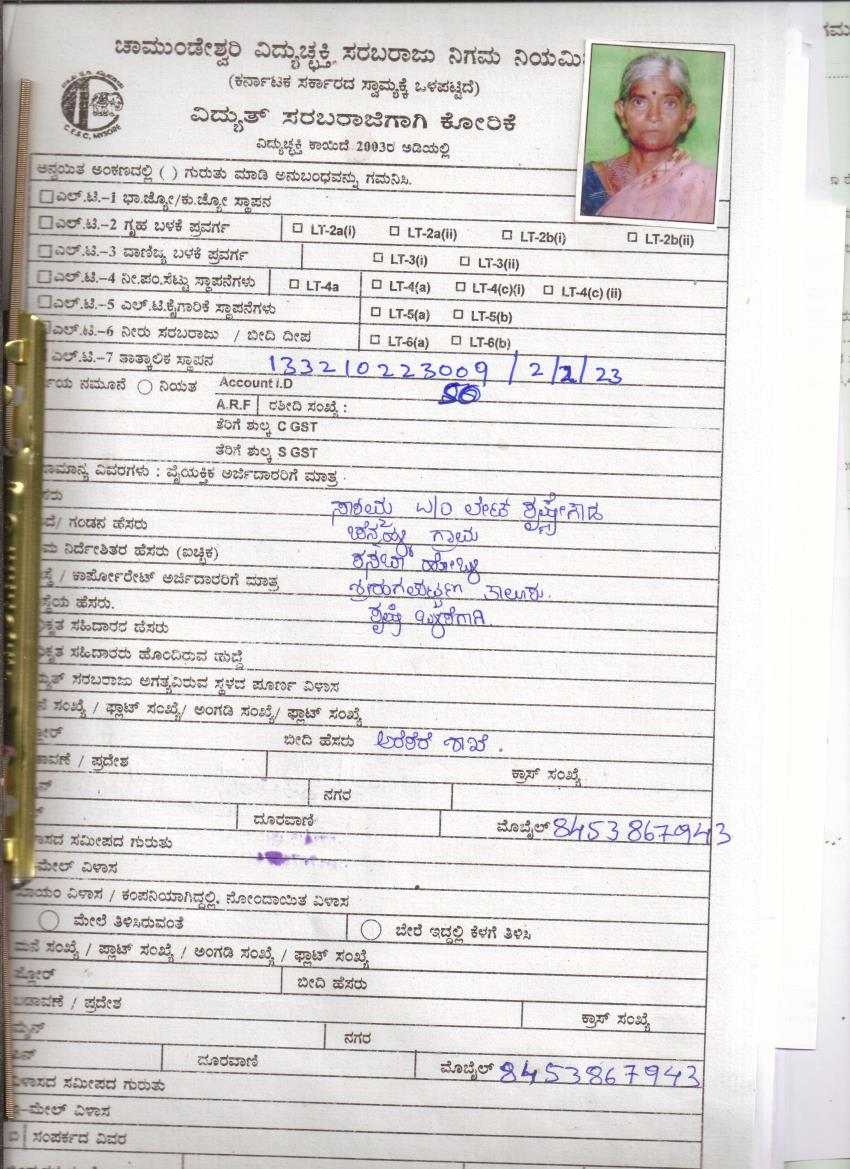 ಚಾಮುಂಡೇಶ್ವರಿ ವಿದ್ಯುಚ್ಛಕ್ತಿ ಸರಬರಾಜು ನಿಗಮ ನಿಯಮಿ
(ಕರ್ನಾಟಕ ಸರ್ಕಾರದ ಸ್ವಾಮ್ಯಕ್ಕೆ ಒಳಪಟ್ಟಿದೆ)
ವಿದ್ಯುತ್ ಸರಬರಾಜಿಗಾಗಿ ಕೋರಿಕೆ
C.E.S.C, MYSORE
ವಿದ್ಯುಚ್ಛಕ್ತಿ ಕಾಯಿದೆ 2003ರ ಅಡಿಯಲ್ಲಿ
ಅನ್ವಯಿತ ಅಂಕಣದಲ್ಲಿ ( ) ಗುರುತು ಮಾಡಿ ಅನುಬಂಧವನ್ನು ಗಮನಿಸಿ.
ಎಲ್.ಟಿ.-1 ಭಾ.ಜ್ಯೋ/ಕು.ಜ್ಯೋ ಸ್ಥಾಪನ
ಎಲ್.ಟಿ.-2 ಗೃಹ ಬಳಕೆ ಪ್ರವರ್ಗ LT-2a(i) LT-2a(ii) LT-2b(i) LT-2b(ii)
ಎಲ್.ಟಿ.-3 ವಾಣಿಜ್ಯ ಬಳಕೆ ಪ್ರವರ್ಗ LT-3(i) LT-3(ii)
ಎಲ್.ಟಿ.-4 ನೀ.ಪಂ.ಸೆಟ್ಟು ಸ್ಥಾಪನೆಗಳು LT-4a LT-4(a) LT-4(c)(i) LT-4(c) (ii)
ಎಲ್.ಟಿ.-5 ಎಲ್.ಟಿ.ಕೈಗಾರಿಕೆ ಸ್ಥಾಪನೆಗಳು LT-5(a) LT-5(b)
ಎಲ್.ಟಿ.-6 ನೀರು ಸರಬರಾಜು / ಬೀದಿ ದೀಪ LT-6(a) LT-6(b)
ಎಲ್.ಟಿ.-7 ತಾತ್ಕಾಲಿಕ ಸ್ಥಾಪನ 133210223009 / 2/2/23
ಯ ನಮೂನೆ ನಿಯತ Account I.D
A.R.F ರಶೀದಿ ಸಂಖ್ಯೆ :
ತೆರಿಗೆ ಶುಲ್ಕ C GST
ತೆರಿಗೆ ಶುಲ್ಕ S GST
ಾಮಾನ್ಯ ವಿವರಗಳು : ವೈಯಕ್ತಿಕ ಅರ್ಜಿದಾರರಿಗೆ ಮಾತ್ರ
ಸರು
ದೆ/ ಗಂಡನ ಹೆಸರು ಗ್ರಾಮ
ಮ ನಿರ್ದೇಶಿತರ ಹೆಸರು (ಐಚ್ಛಿಕ) ಕಸಬಾ ಹೋಬಳಿ
/ ಕಾರ್ಪೋರೇಟ್ ಅರ್ಜಿದಾರರಿಗೆ ಮಾತ್ರ ಶ್ರೀರಂಗಪಟ್ಟಣ ತಾಲೂಕು.
ಸ್ಥೆಯ ಹೆಸರು.
ಕೃತ ಸಹಿದಾರರ ಹೆಸರು
ಕೃತ ಸಹಿದಾರರು ಹೊಂದಿರುವ ಹುದ್ದೆ
ಯುತ್ ಸರಬರಾಜು ಅಗತ್ಯವಿರುವ ಸ್ಥಳದ ಪೂರ್ಣ ವಿಳಾಸ
ನೆ ಸಂಖ್ಯೆ / ಫ್ಲಾಟ್ ಸಂಖ್ಯೆ/ ಅಂಗಡಿ ಸಂಖ್ಯೆ/ ಫ್ಲಾಟ್ ಸಂಖ್ಯೆ
ೋರ್ ಬೀದಿ ಹೆಸರು ಅರಕೆರೆ ಶಾಖೆ.
ಾವಣೆ / ಪ್ರದೇಶ ಕ್ರಾಸ್ ಸಂಖ್ಯೆ
ನಗರ
ದೂರವಾಣಿ ಮೊಬೈಲ್ 8453867943
ಾಸದ ಸಮೀಪದ ಗುರುತು
ಮೇಲ್ ವಿಳಾಸ
ಾಯಂ ವಿಳಾಸ / ಕಂಪನಿಯಾಗಿದ್ದಲ್ಲಿ, ನೋಂದಾಯಿತ ವಿಳಾಸ
ಮೇಲೆ ತಿಳಿಸಿರುವಂತೆ ಬೇರೆ ಇದ್ದಲ್ಲಿ ಕೆಳಗೆ ತಿಳಿಸಿ
ಮನೆ ಸಂಖ್ಯೆ / ಪ್ಲಾಟ್ ಸಂಖ್ಯೆ / ಅಂಗಡಿ ಸಂಖ್ಯೆ / ಫ್ಲಾಟ್ ಸಂಖ್ಯೆ
ಫ್ಲೋರ್ ಬೀದಿ ಹೆಸರು
ಬಡಾವಣೆ / ಪ್ರದೇಶ ಕ್ರಾಸ್ ಸಂಖ್ಯೆ
ಮೈನ್ ನಗರ
ಪಿನ್ ದೂರವಾಣಿ ಮೊಬೈಲ್ 8453867943
ವಿಳಾಸದ ಸಮೀಪದ ಗುರುತು
ಇ-ಮೇಲ್ ವಿಳಾಸ
ಸಂಪರ್ಕದ ವಿವರ